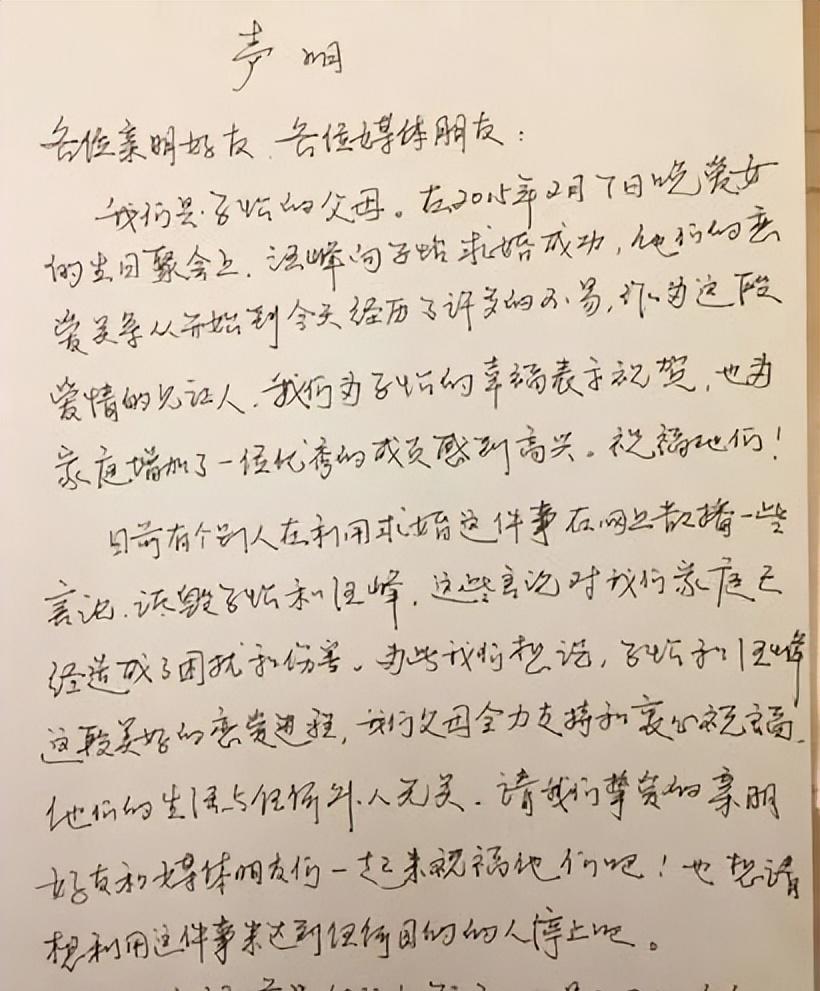 声明
各位亲朋好友、各位媒体朋友:
我们是子怡的父母。在2015年2月7日晚爱女
的生日聚会上,汪峰向子怡求婚成功,他们的恋
爱关系从开始到今天经历了许多的不易,作为这段
爱情的见证人,我们为子怡的幸福表示祝贺,也为
家庭增加了一位优秀的成员感到高兴。祝福他们!
目前有个别人在利用求婚这件事在网上散播一些
言论,诋毁子怡和汪峰,这些言论对我们家庭已
经造成了困扰和伤害。为此我们想说,子怡和汪峰
这段美好的恋爱进程,我们父母全力支持和衷心祝福,
他们的生活与任何外人无关。请我们挚爱的亲朋
好友和媒体朋友们一起来祝福他们吧!也想请
想利用这件事来达到任何目的的人停止吧。